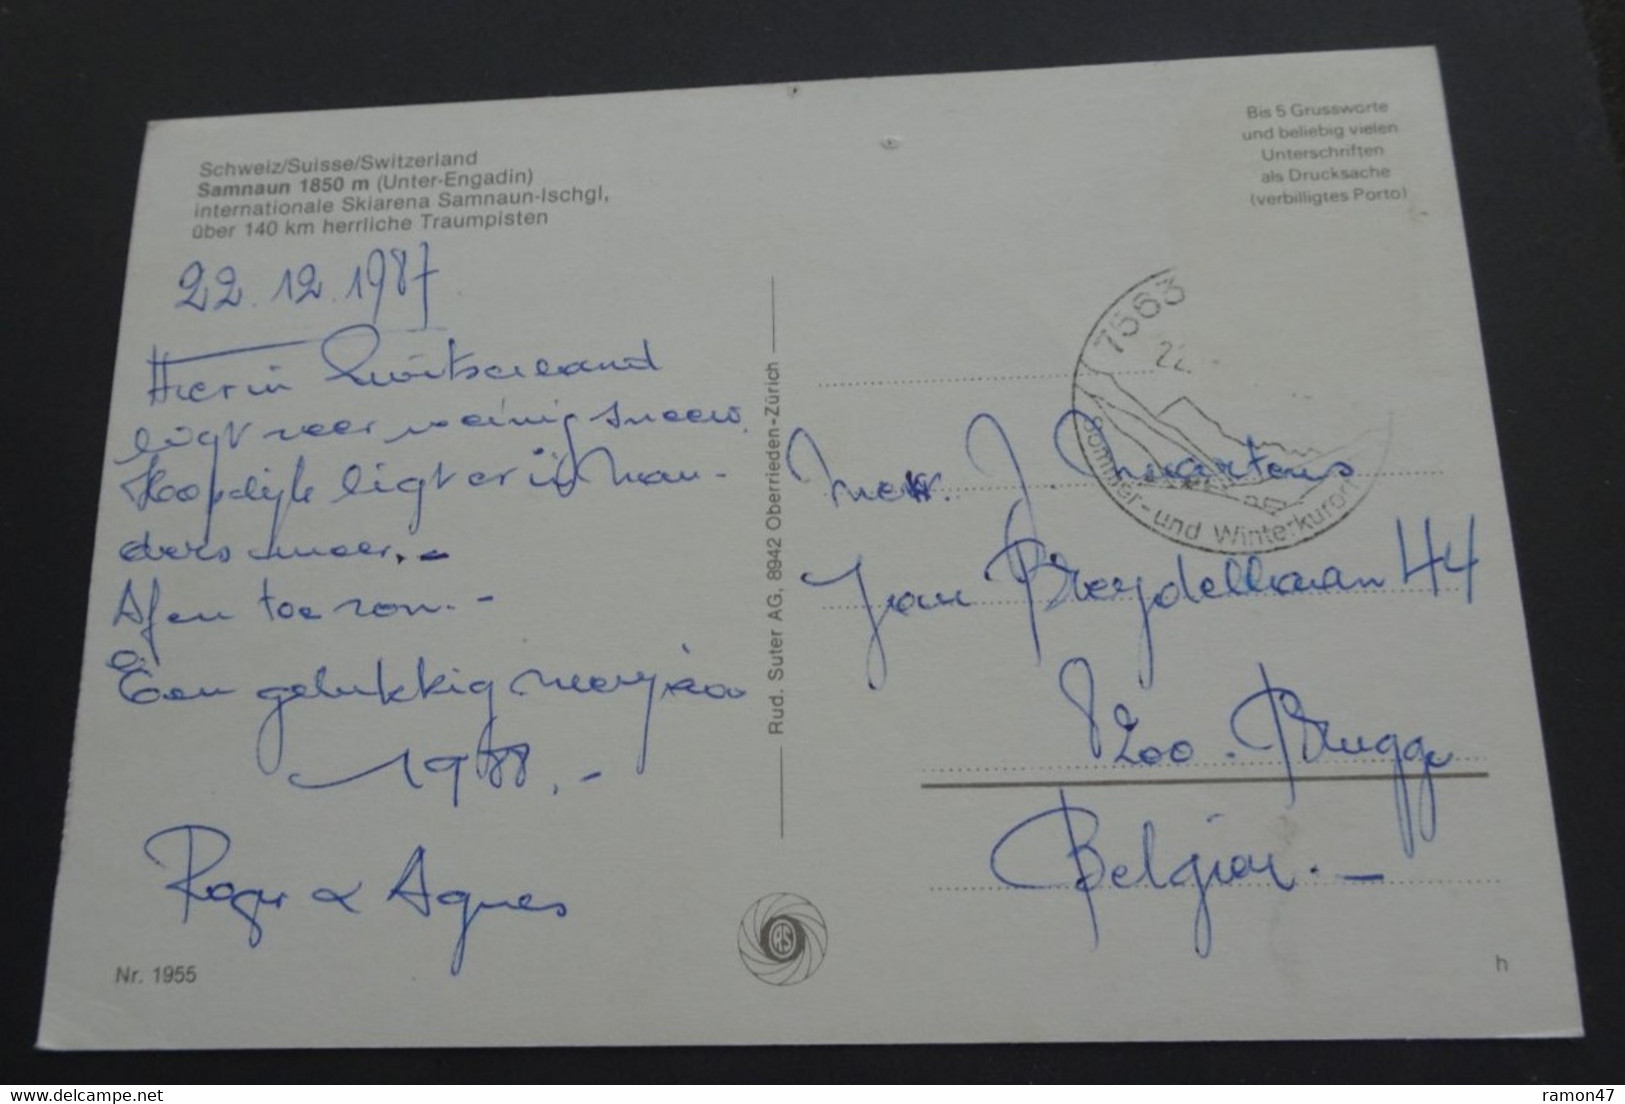 Schweiz/Suisse/Switzerland
Samnaun 1850 m (Unter-Engadin)
internationale Skiarena Samnaun-Ischgl,
über 140 km herrliche Traumpisten
22.12.1987
Hier in Zwitserland
ligt zeer weinig sneeuw.
Hoopelijk ligt er in Nau-
ders meer.-
Afen toe zon.-
Een gelukkig nieuwjaar
1988.-
Roger & Agnes
Nr. 1955
Rud. Suter AG, 8942 Oberrieden-Zürich
RS
Bis 5 Grussworte
und beliebig vielen
Unterschriften
als Drucksache
(verbilligtes Porto)
7563
22.
Sommer- und Winterkurort
Mevr. J. Maertens
Jan Breydellaan 44
8200. Brugge
Belgien.-
h
www.delcampe.net
ramon47